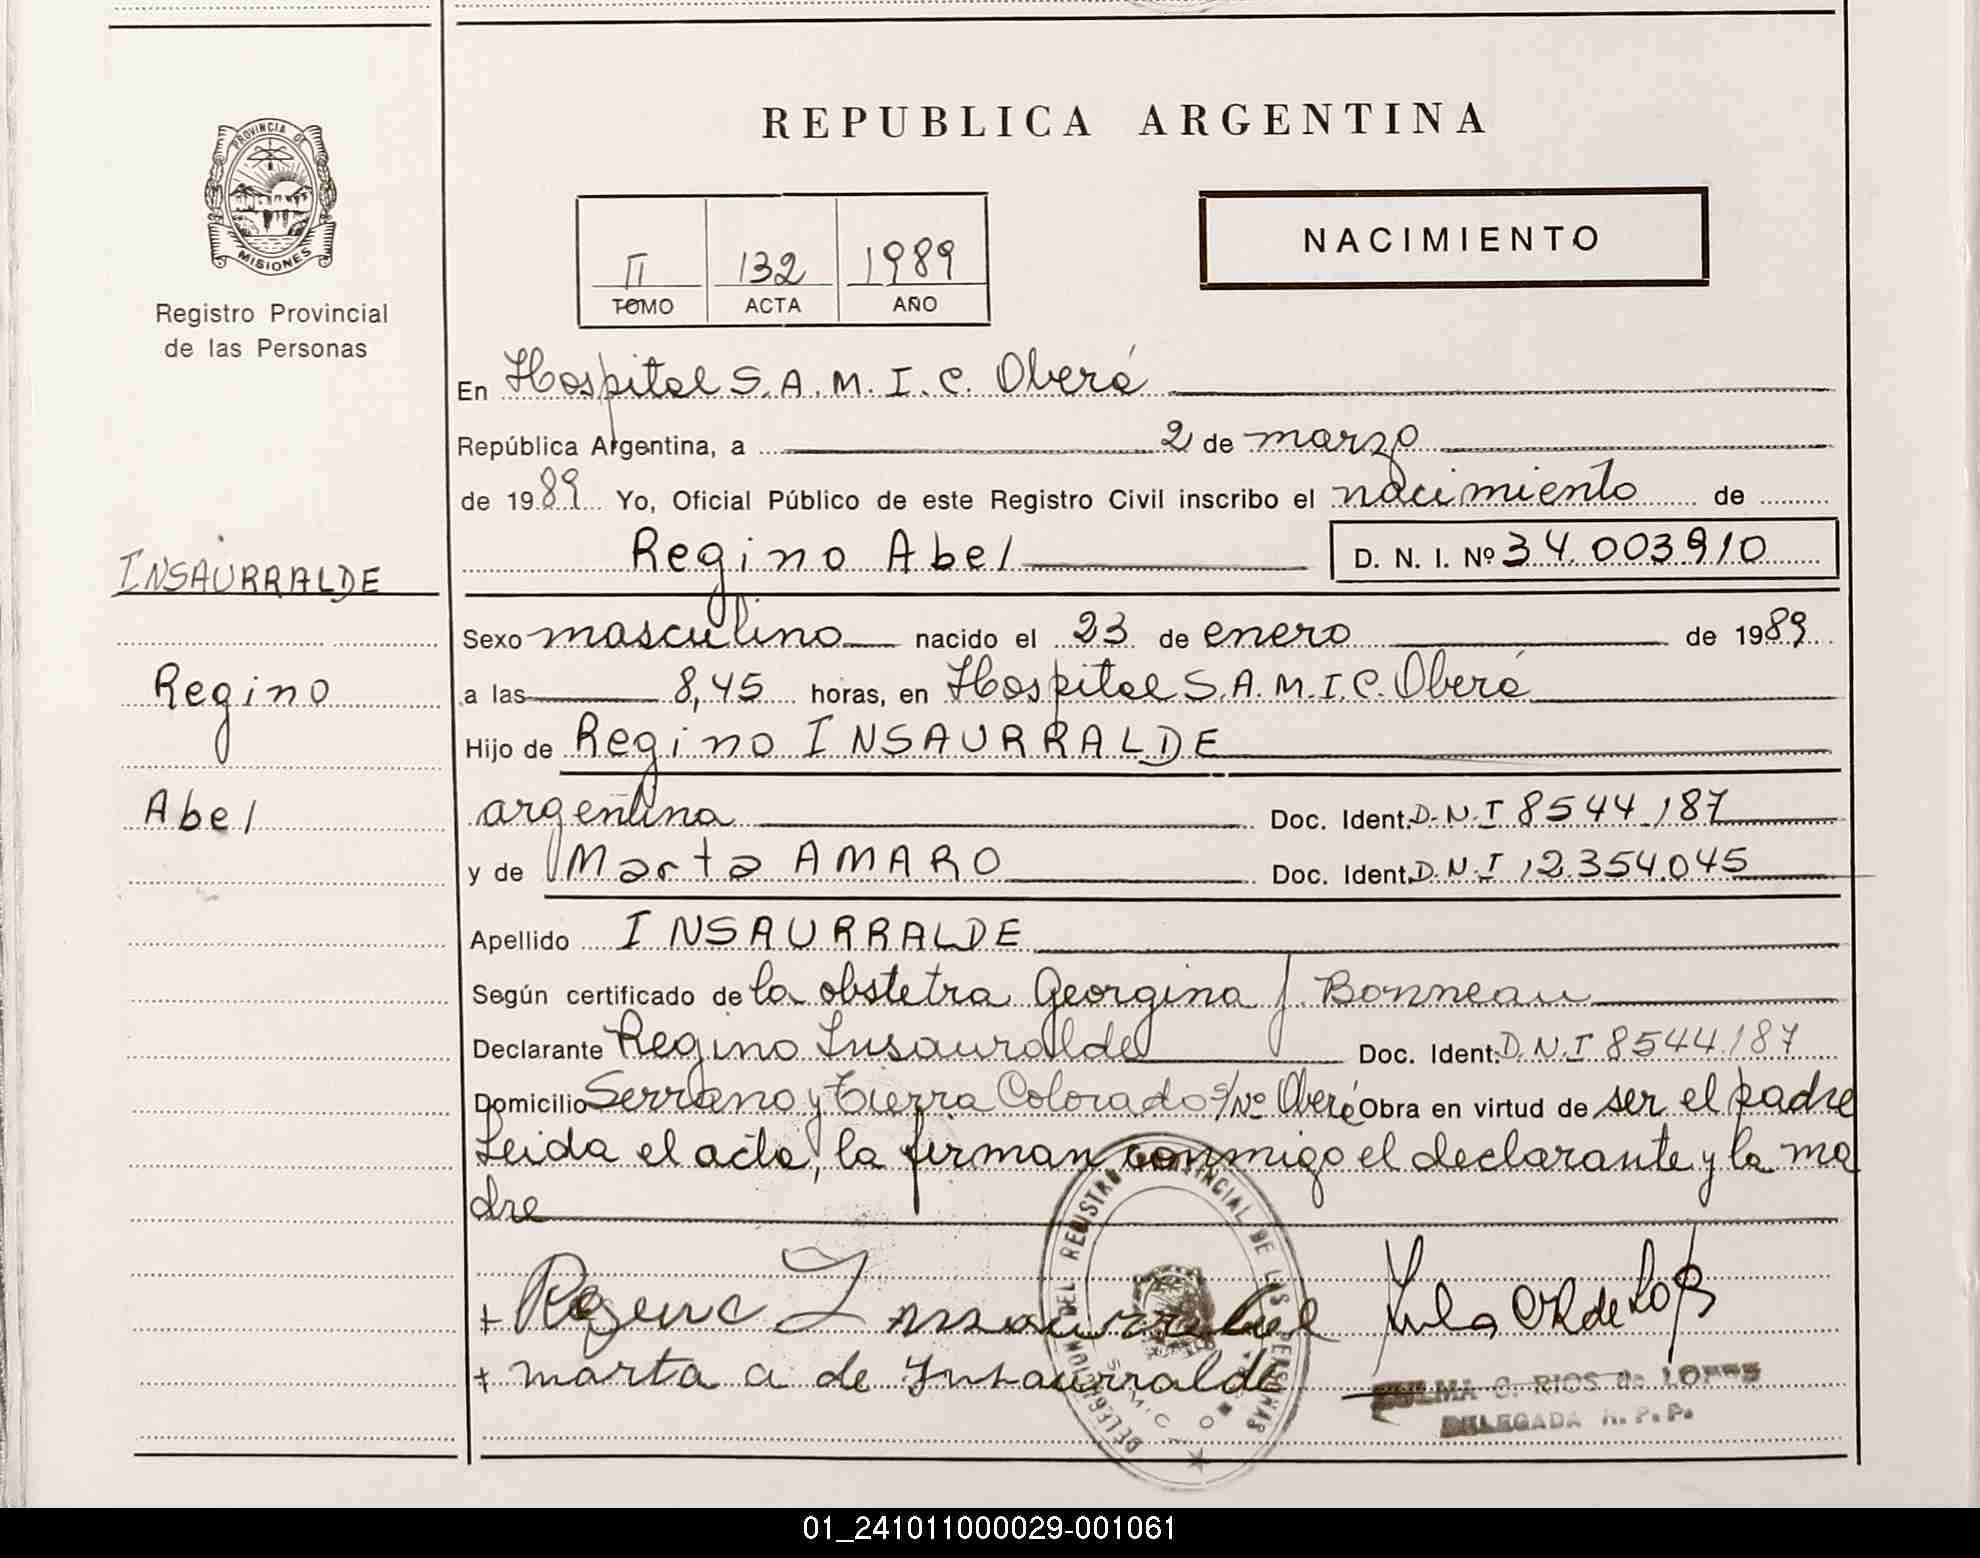 REPUBLICA ARGENTINA
PROVINCIA DE
MISIONES
Registro Provincial
de las Personas
NACIMIENTO
II 132 1989
TOMO ACTA AÑO
En Hospital S.A.M.I.C. Oberá
República Argentina, a 2 de marzo
de 1989 Yo, Oficial Público de este Registro Civil inscribo el nacimiento de
Regino Abel D. N. I. Nº 34.003.910
INSAURRALDE
Regino
Abel
Sexo masculino nacido el 23 de enero de 1989
a las 8,45 horas, en Hospital S.A.M.I.C. Oberá
Hijo de Regino INSAURRALDE
argentina Doc. Ident. D.N.I 8544.187
y de Marta AMARO Doc. Ident. D.N.I 12.354.045
Apellido INSAURRALDE
Según certificado de la obstetra Georgina J. Bonneau
Declarante Regino Insaurralde Doc. Ident. D.N.I 8544.187
Domicilio Serrano y Tierra Colorado s/Nº Oberá Obra en virtud de ser el padre
Leida el acta, la firman conmigo el declarante y la ma
dre
DELEGACION DEL REGISTRO PROVINCIAL DE LAS PERSONAS
+ Insaurralde
+ marta a de Insaurralde
ZULMA C. RIOS de LOPEZ
DELEGADA R.P.P.
01_241011000029-001061